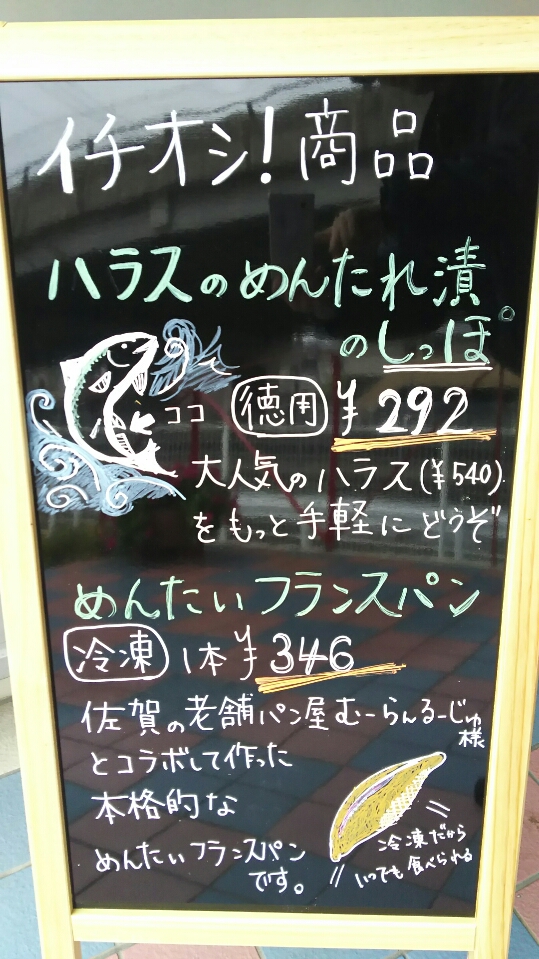 イチオシ!商品
ハラスのめんたれ漬
のしっぽ。
ココ 徳用 ¥292
大人気のハラス(¥540)
をもっと手軽にどうぞ
めんたいフランスパン
冷凍 1本¥346
佐賀の老舗パン屋むーらんるーじゅ様
とコラボして作った
本格的な
めんたいフランスパン
です。
冷凍だから
いつでも食べられる